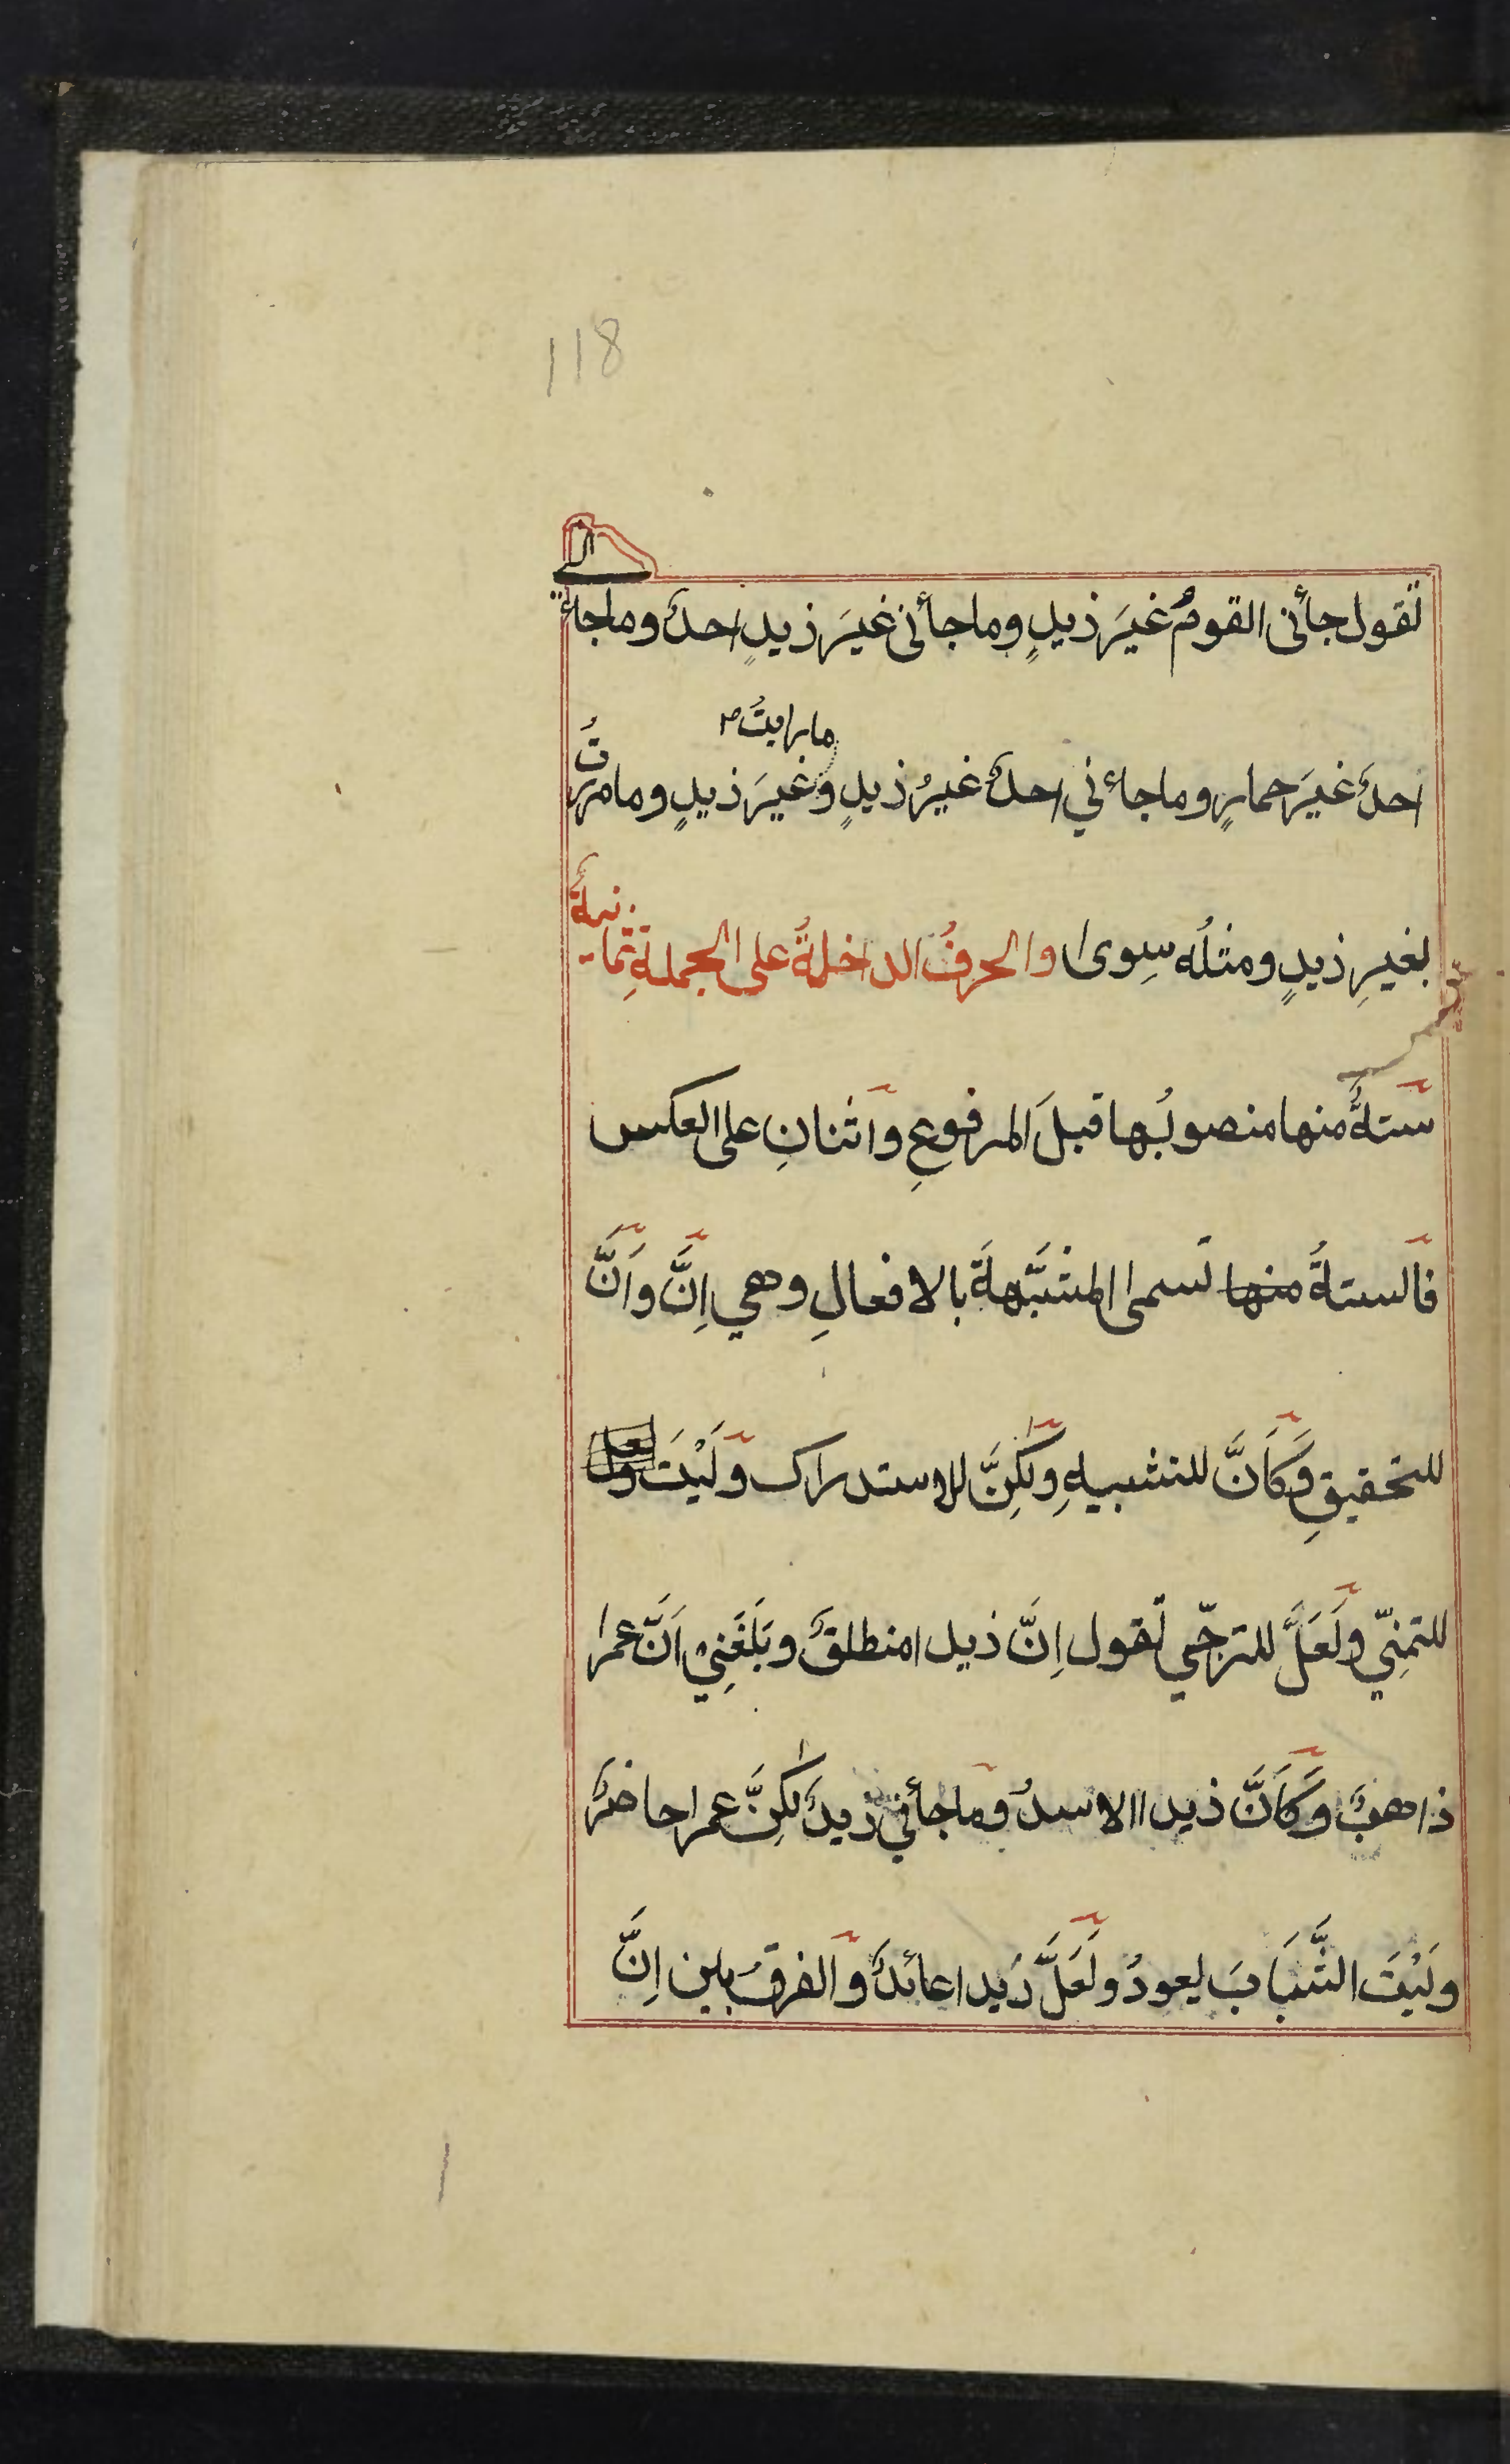 118
تقول جأنى القومُ غيَر زيدٍ وما جأنى غيَر زيدٍ احدٌ وما جاءَنى
احدٌ غيَر حمارٍ وما جاءني احدٌ غيرُ زيدٍ وما رايتُ غيَر زيدٍ وما مررتُ
بغيرِ زيدٍ ومثلُه سِوى والحرفُ الداخلةُ على الجملةِ ثمانيةٌ
ستةٌ منها منصوبُها قبلَ المرفوعِ واثنانِ على العكس
فالستةُ منها تسمى المشبَّهةَ بالافعالِ وهي اِنَّ واَنَّ
للتحقيقِ وكَاَنَّ للتشبيهِ ولٰكِنَّ للاستدراك ولَيْتَ ولعل
للتمنِّي ولَعَلَّ للترجّي تقول اِنَّ زيدا منطلقٌ وبَلَغَنِيْ اَنَّ عمرا
ذاهبٌ وكَاَنَّ زيدا الاسدُ وما جأني زيدٌ لٰكِنَّ عمرا حاضرٌ
ولَيْتَ الشَّبَابَ يعودُ ولَعَلَّ زيدا عائدٌ والفرقُ بين اِنَّ